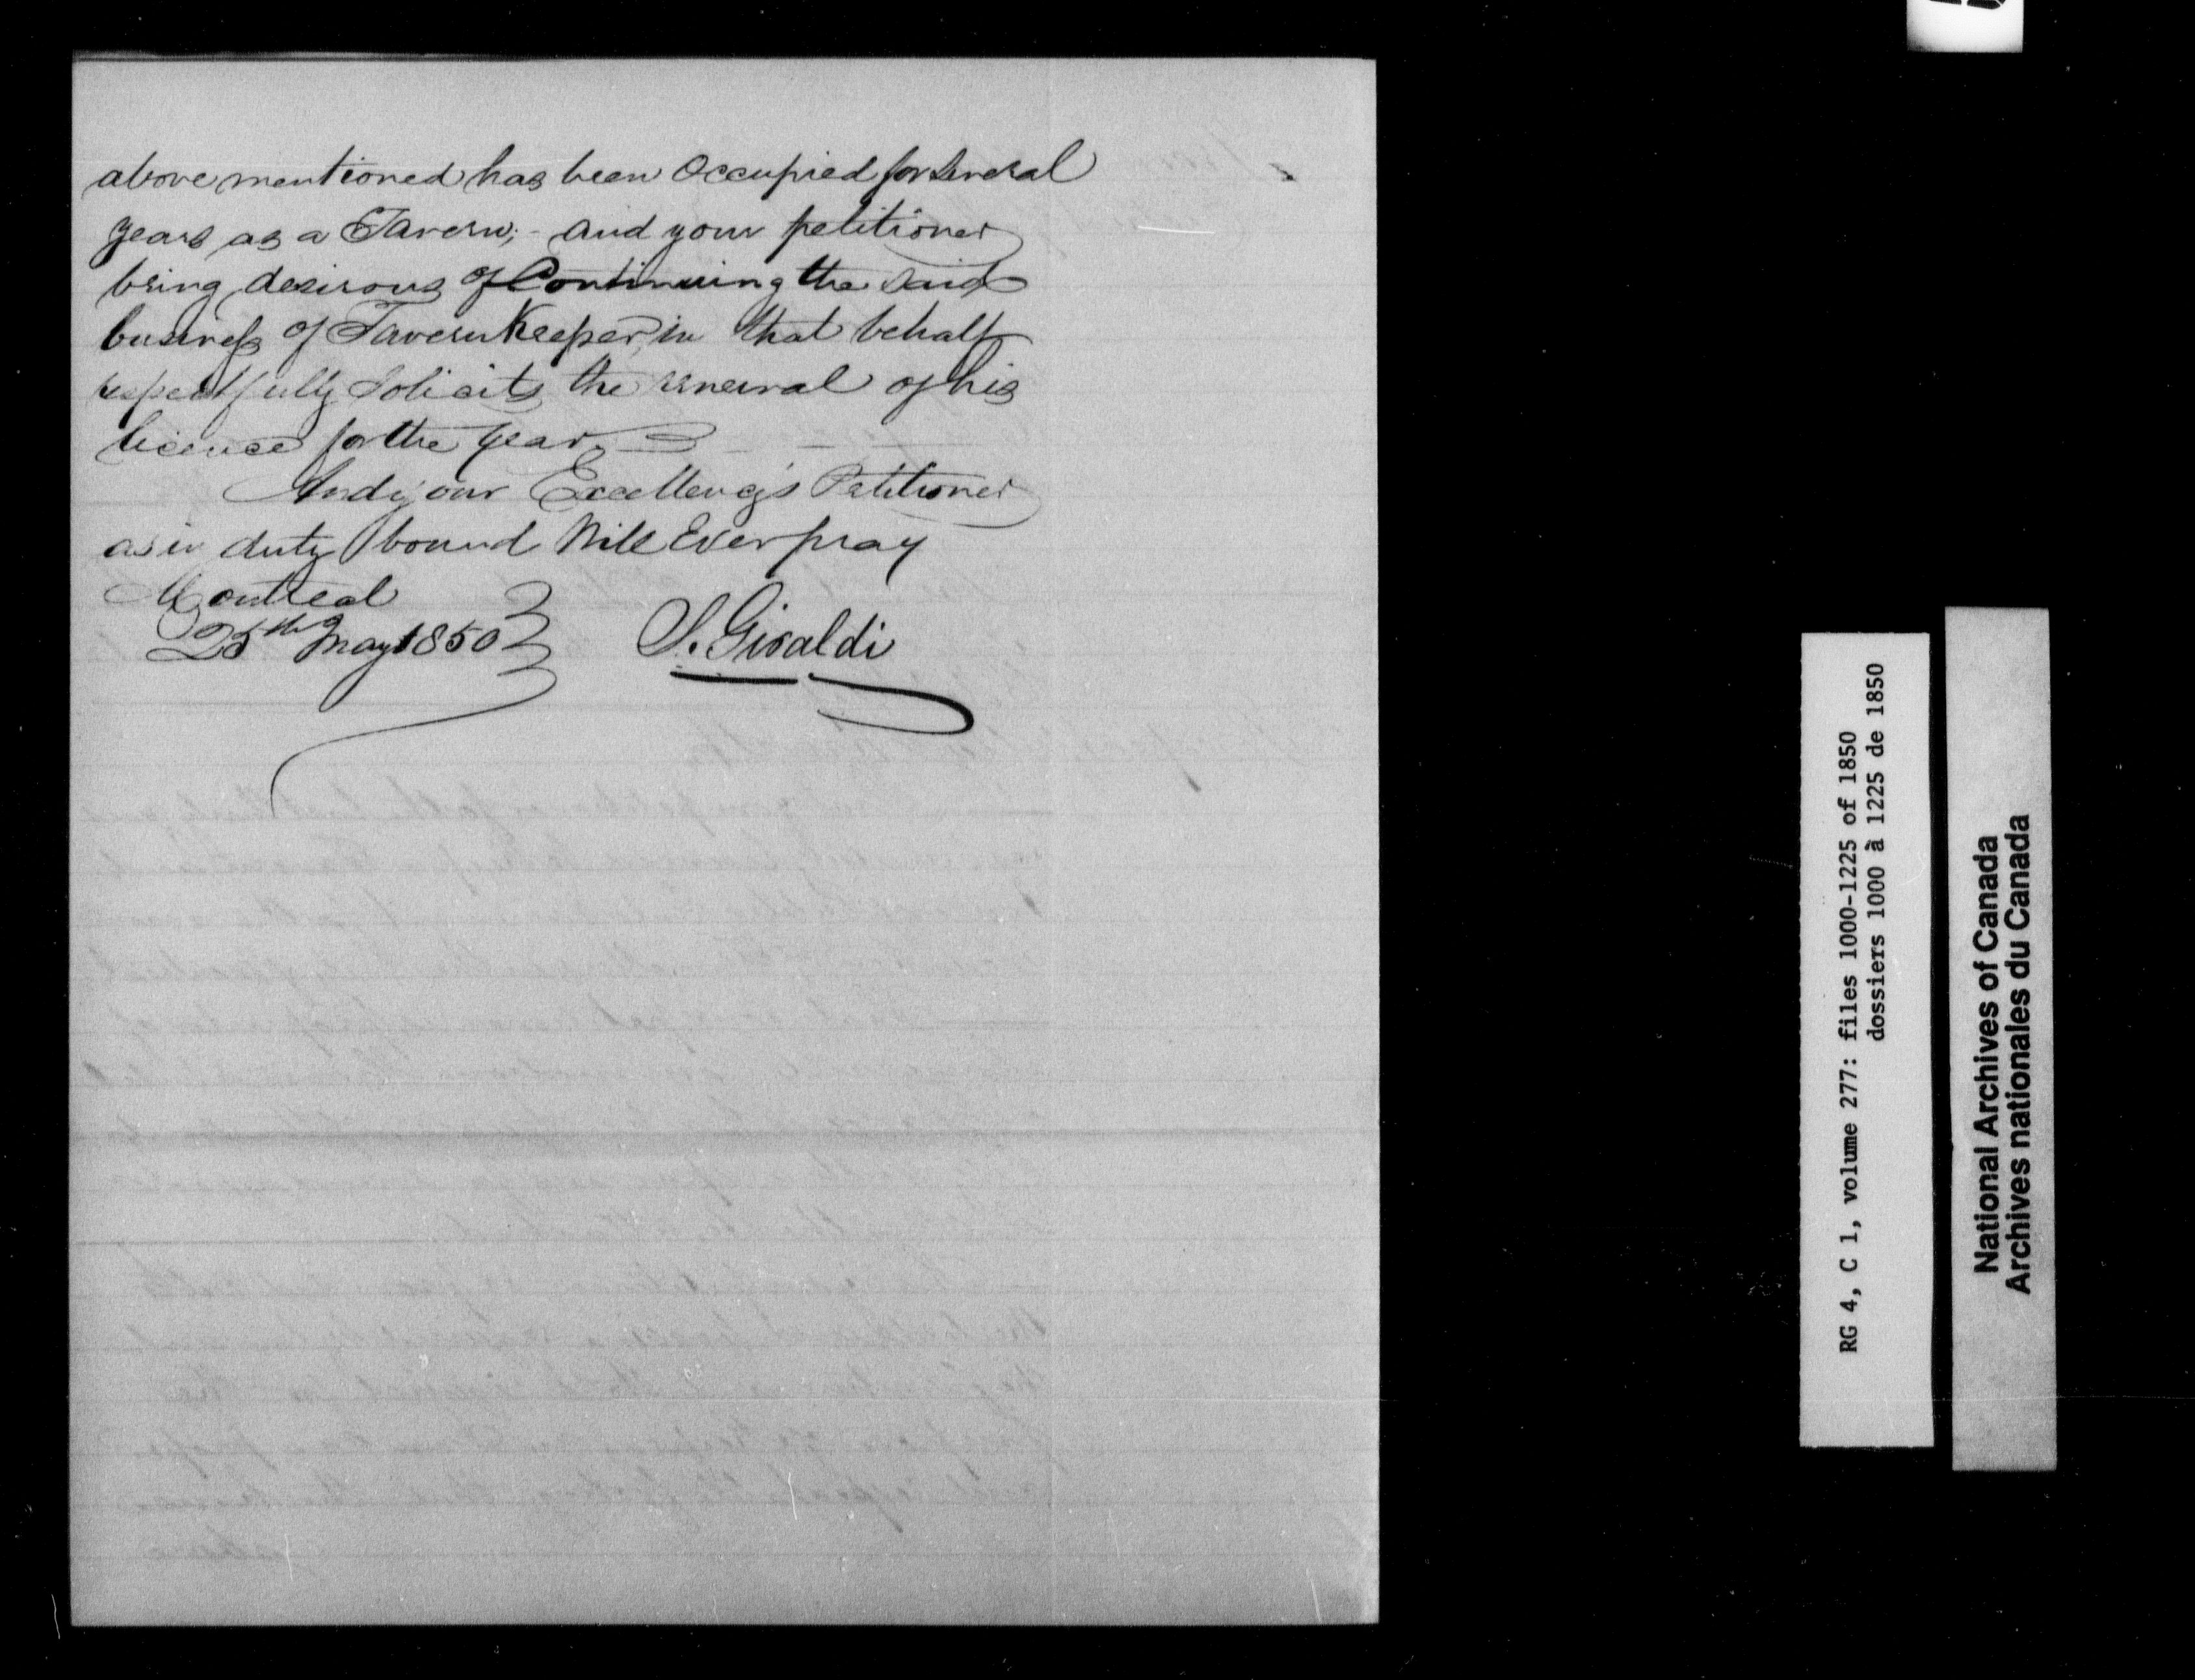 above mentioned has been Occupied for Several
years as a Tavern; - and your petitioner
being desirous of Continuing the said
business of Tavern Keeper in that behalf
respectfully Solicits the renewal of his
licence for the year
And your Excellency's Petitioner
as in duty bound Will Ever pray
Montreal
25th May 1850
S. Giraldi
RG 4, C 1, volume 277: files 1000-1225 of 1850
dossiers 1000 à 1225 de 1850
National Archives of Canada
Archives nationales du Canada